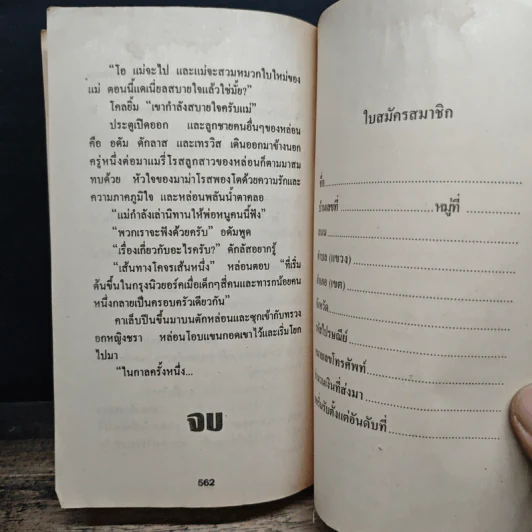 “โอ แม่จะไป และแม่จะสวมหมวกใบใหม่ของ
แม่ ตอนนี้แดเนี่ยลสบายใจแล้วใช่มั้ย?”
โคลยิ้ม “เขากำลังสบายใจครับแม่”
ประตูเปิดออก และลูกชายคนอื่นๆของหล่อน
คือ อดัม ดักลาส และเทรวิส เดินออกมาข้างนอก
ครู่หนึ่งต่อมาแมรี่โรสลูกสาวของหล่อนก็ตามมาสม
ทบด้วย หัวใจของมาม่าโรสพองโตด้วยความรักและ
ความภาคภูมิใจ และหล่อนพลันน้ำตาคลอ
“แม่กำลังเล่านิทานให้พ่อหนูคนนี้ฟัง”
“พวกเราจะฟังด้วยครับ” อดัมพูด
“เรื่องเกี่ยวกับอะไรครับ?” ดักลัสอยากรู้
“เส้นทางโคจรเส้นหนึ่ง” หล่อนตอบ “ที่เริ่ม
ต้นขึ้นในกรุงนิวยอร์คเมื่อเด็กๆสี่คนและทารกน้อยคน
หนึ่งกลายเป็นครอบครัวเดียวกัน”
คาเล็บปีนขึ้นมาบนตักหล่อนและซุกเข้ากับทรวง
อกหญิงชรา หล่อนโอบแขนกอดเขาไว้และเริ่มโยก
ไปมา
“ในกาลครั้งหนึ่ง...
จบ
562
ใบสมัครสมาชิก
ชื่อ
บ้านเลขที่ หมู่ที่
ถนน
ตำบล (แขวง)
อำเภอ (เขต)
จังหวัด
รหัสไปรษณีย์
หมายเลขโทรศัพท์
จำนวนเงินที่ส่งมา
ขอเริ่มรับตั้งแต่อันดับที่